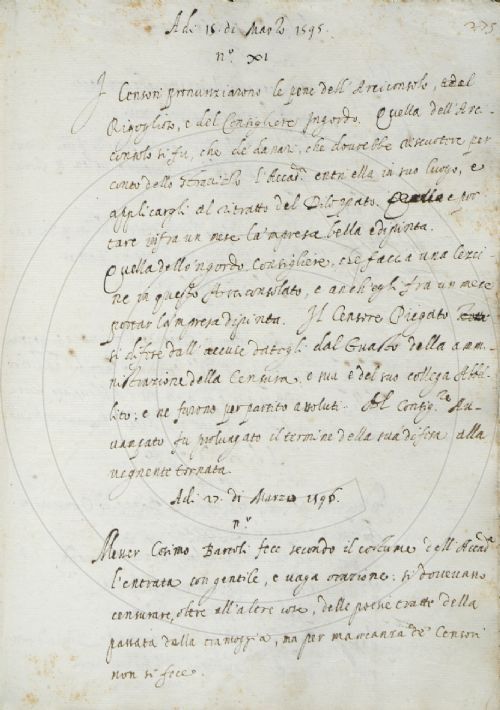 275
Adi 15. di Marzo 1595.
n.º XI
I Censori pronunziarono le pene dell'Arciconsolo, e del
Rigoglioso, e del Consigliere Ingordo. Quella dell'Arci-
consolo si fu, che de danari, che dovrebbe riscuotere per
conto dello Stravizzo l'Accad.ª entri ella in suo luogo, e
applicargli al ritratto del Diloppato. e por
tare infra un mese la impresa bella e dipinta.
Quella dello 'ngordo Consigliere, che faccia una Lezzi
ne in questo Arciconsolato, e anch'egli fra un mese
portar la impresa dipinta. Il Censore Ripato
si difese dall'accuse dategli dal Guasto della amm-
nistrazione della Censura, e sua e del suo collega Abbu-
lito; e ne furono per partito assoluti. Al Consig.re Av-
vanzato fu prolungato il termine della sua difesa alla
vegnente tornata.
Adi 27. di Marzo 1596.
n.º
Messer Cosimo Bartoli fece secondo il costume dell'Accadª
l'entrata con gentile, e vaga orazione: si dovevano
censurare, oltre all'altre cose, delle poche tratte della
passata dalla tramoggia, ma per mancanza de Censori
non si fece.